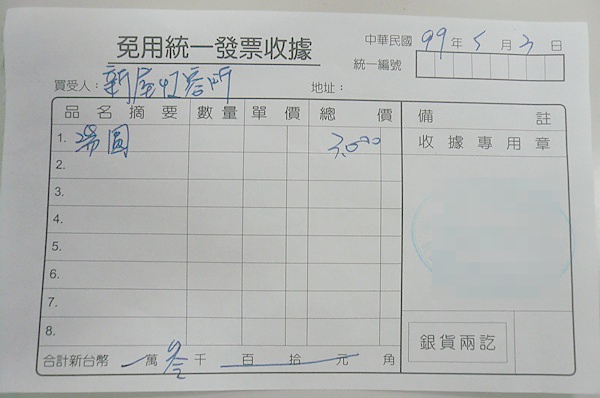 免用統一發票收據
中華民國 99 年 5 月 3 日
統一編號
買受人: 新屋收容所 地址:
品名摘要 數量 單價 總價 備註
1. 湯圓 3,000 收據專用章
2.
3.
4.
5.
6.
7.
8.
銀貨兩訖
合計新台幣 萬 叁 千 百 拾 元 角